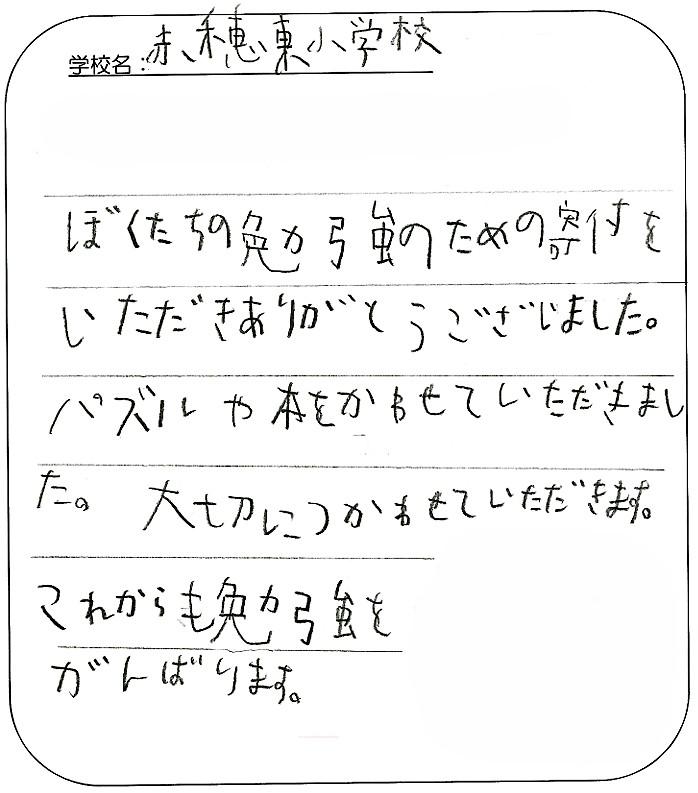 学校名：赤穂東小学校
ぼくたちの勉強のための寄付を
いただきありがとうございました。
パズルや本をかわせていただきまし
た。大切につかわせていただきます。
これからも勉強を
がんばります。